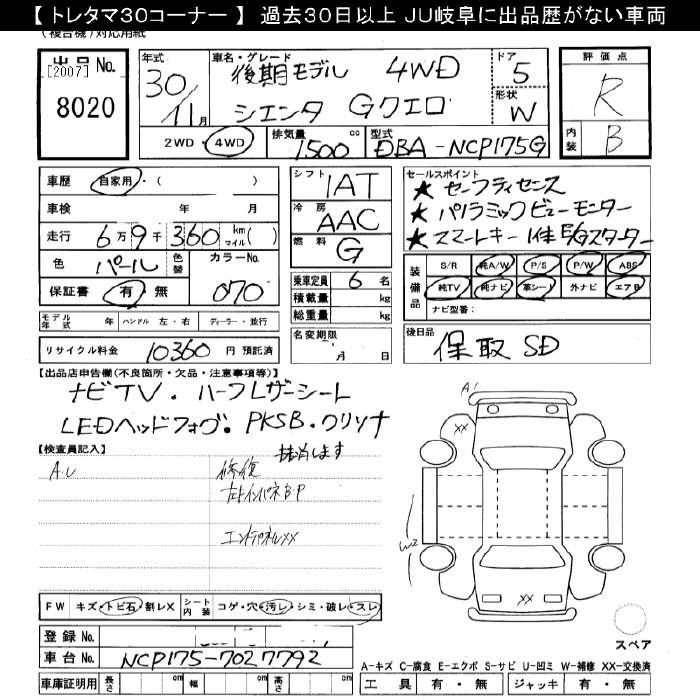 【 トレタマ30コーナー 】 過去30日以上 JU岐阜に出品歴がない車両
(複合機)対応用紙
出品 No.
[2007]
8020
年式
30/11月
車名・グレード
後期モデル 4WD
シエンタ Gクエロ
ドア
5
形状
W
評価点
R
内装
B
2WD ・ 4WD
排気量
1500 cc
型式
DBA-NCP175G
車歴 自家用・( )
車検 年 月
走行 6万9千360 km マイル( )
色 パール 色替 カラーNo. 070
保証書 有・無
シフト IAT
冷房 AAC
燃料 G
乗車定員 6 名
積載量 kg
総重量 kg
セールスポイント
★ セーフティセンス
★ パノラミックビューモニター
★ スマートキー 1本 E/Gスターター
装備品
S/R 純A/W P/S P/W ABS
純TV 純ナビ 革シート 外ナビ エアB
ナビ型番:
モデル年式 年 ハンドル 左・右 ディーラー・並行
名変期限
月 日
後日品
保取 SD
リサイクル料金 10360 円 預託済
【出品店申告欄(不良箇所・欠品・注意事項等)】
ナビTV. ハーフレザーシート
LEDヘッドフォグ. PKSB. クリソナ
【検査員記入】
抹消します
A.U
修復
左トインパネB.P
エンドパネルXX
A1
XX
W2
XX
FW キズ・トビ石・割レX シート内装 コゲ・穴・汚レ・シミ・破レ・スレ
スペア
登録 No.
車台 No. NCP175-7027792
A-キズ C-腐食 E-エクボ S-サビ U-凹ミ W-補修 XX-交換済
車庫証明用 長さ cm 幅 cm 高さ cm
工具 有・無 ジャッキ 有・無